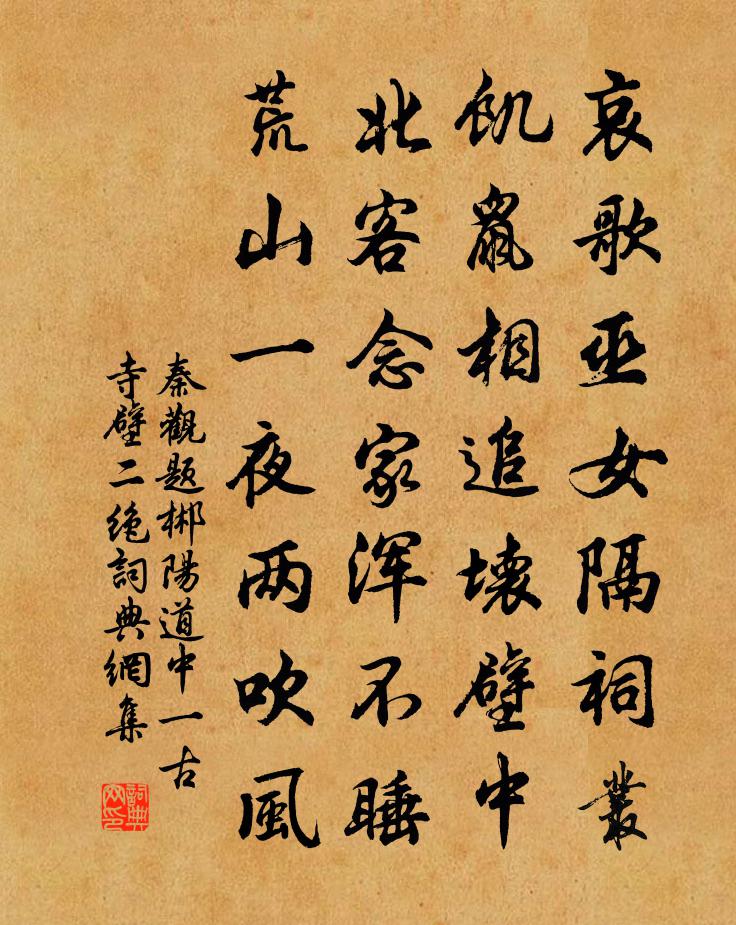 哀歌巫女隔祠叢
飢鼠相追壞壁中
北客念家浑不睡
荒山一夜两吹風
秦觀题郴陽道中一古
寺壁二绝詞典網集
詞典网印